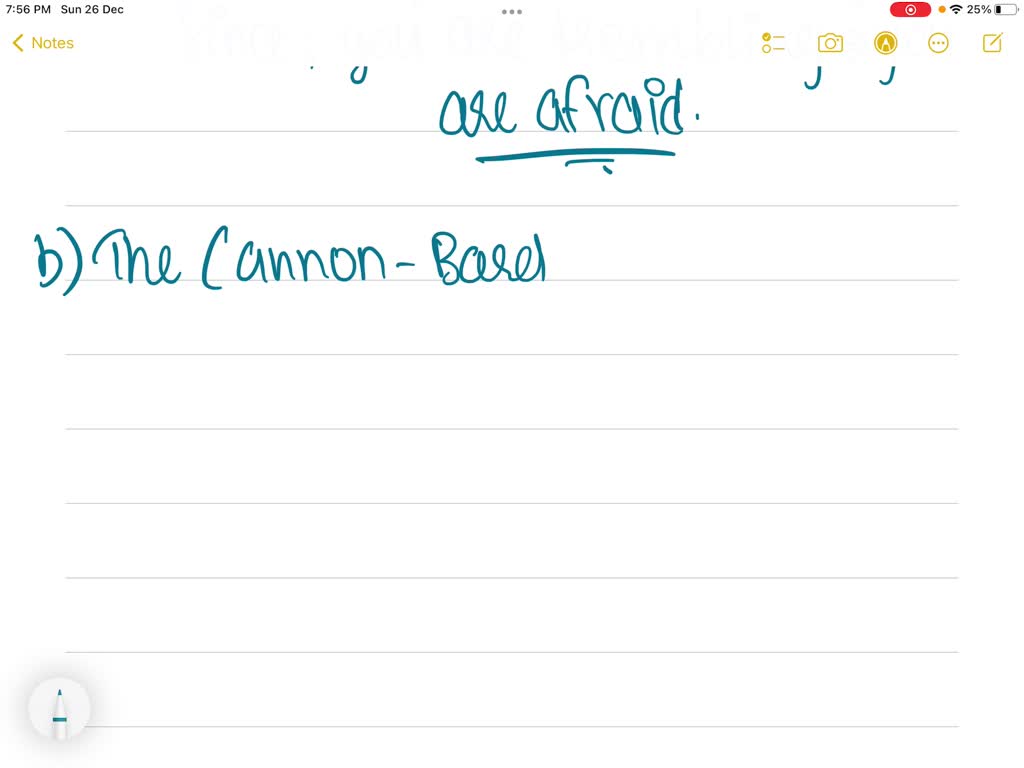 7:56 PM Sun 26 Dec
25%
Notes
you are
are afraid.
b) The Cannon-Bard